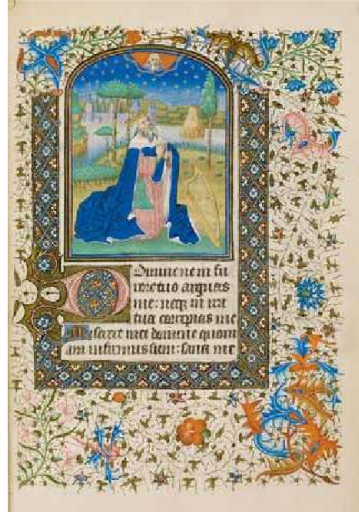 Domine ne in fu
rore tuo arguas
me: neqz in ira
tua corripias me
Miserere mei domine quoni
am infirmus sum: sana me